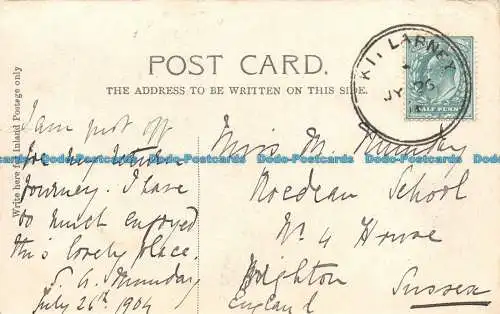 POST CARD.
THE ADDRESS TO BE WRITTEN ON THIS SIDE.
Write here for Inland Postage only
KILLARNEY
JY 26
HALF PENNY
I am just off
for my return
journey. I have
so much enjoyed
this lovely place.
July 26th 1904
Miss M.
Roedean School
No 4 House
Brighton
Sussex
England
Dobo Postcards Dobo Postcards Dobo Postcards Dobo Postcards Dobo Postcards Dobo Postcards